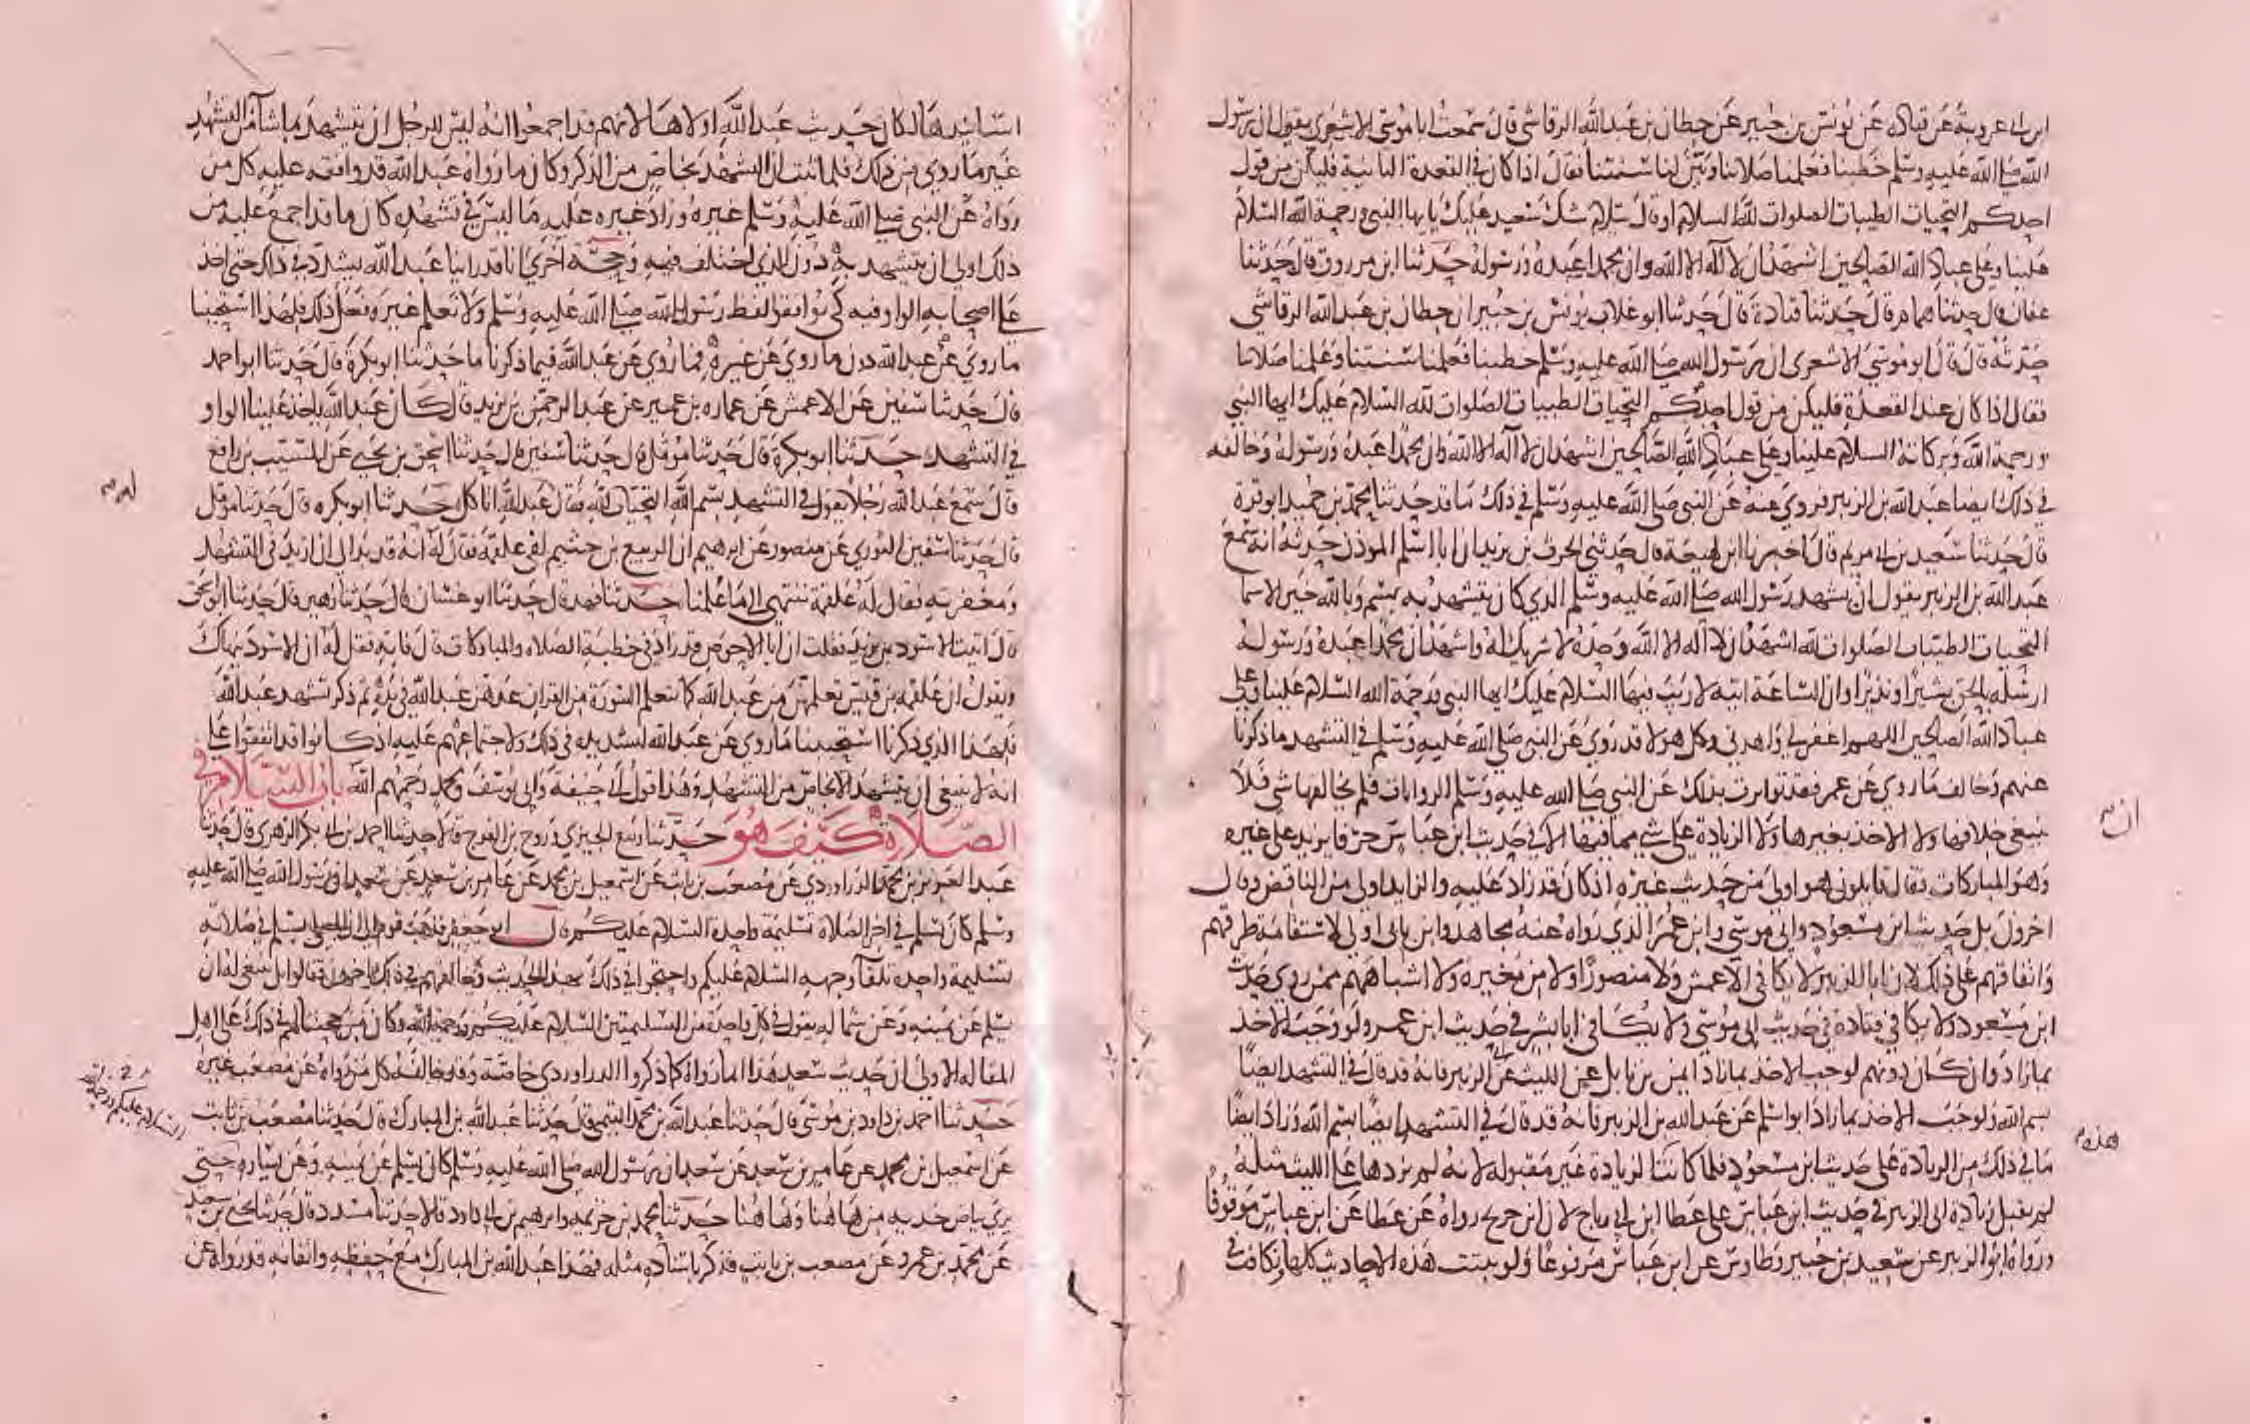 ابن ابى عروبة عن قتادة عن يونس بن جبير عن حطان بن عبد الله الرقاشى قال سمعت ابا موسى الاشعرى يقول ان رسول
الله صلى الله عليه وسلم خطبنا فعلمنا صلاتنا وبين لنا سنتنا فقال اذا كان فى القعدة الثانية فليكن من قول
احدكم التحيات الطيبات الصلوات لله السلام او قال سلام شك سعيد عليك يا ايها النبى ورحمة الله السلام
علينا وعلى عباد الله الصالحين اشهد ان لا اله الا الله وان محمدا عبده ورسوله حدثنا ابن مرزوق قال حدثنا
عفان قال حدثنا همام قال حدثنا قتادة قال حدثنا ابو غلاب يونس بن جبير ان حطان بن عبد الله الرقاشى
حدثه قال قال ابو موسى الاشعرى ان رسول الله صلى الله عليه وسلم خطبنا فعلمنا سنتنا وعلمنا صلاتنا
فقال اذا كان عند القعدة فليكن من قول احدكم التحيات الطيبات الصلوات لله السلام عليك ايها النبى
ورحمة الله وبركاته السلام علينا وعلى عباد الله الصالحين اشهد ان لا اله الا الله وان محمدا عبده ورسوله وخالفه
فى ذلك ايضا عبد الله بن الزبير فروى عنه عن النبى صلى الله عليه وسلم فى ذلك ما قد حدثنا محمد بن حميد ابو قرة
قال حدثنا سعيد بن ابى مريم قال اخبرنا ابن لهيعة قال حدثنى الحرث بن يزيد ان ابا اسلم الموذن حدثه انه سمع
عبد الله بن الزبير يقول ان تشهد رسول الله صلى الله عليه وسلم الذى كان يتشهد به بسم وبالله خير الاسما
التحيات الطيبات الصلوات لله اشهد ان لا اله الا الله وحده لا شريك له واشهد ان محمدا عبده ورسوله
ارسله بالحق بشيرا ونذيرا وان الساعة اتية لا ريب فيها السلام عليك ايها النبى ورحمة الله السلام علينا وعلى
عباد الله الصالحين اللهم اغفر لى واهدنى وكل هولا قد روى عن النبى صلى الله عليه وسلم فى التشهد ما ذكرنا
عنهم وخالف ما روى عن عمر فقد تواترت بذلك عن النبى صلى الله عليه وسلم الروايات فلم يخالفها شى فلا
ينبغى خلافها ولا الاخذ بغيرها ولا الزيادة على شى مما فيها الا فى حديث ابن عباس حرفا يزيد على غيره
وهو المباركات فقال قايلون هو اولى من حديث غيره اذ كان قد زاد عليه والزايد اولى من الناقص وقال
اخرون بل حديث ابن مسعود وابى موسى وابن عمر الذى رواه عنه مجاهد وابن بابى اولى لاستقامة طرقهم
واتفاقهم على ذلك لان ابا الزبير لا يكافى الاعمش ولا منصورا ولا من مغيرة ولا اشباههم ممن روى حديث
ابن مسعود ولا يكافى قتادة فى حديث ابى موسى ولا يكافى ابا بشر فى حديث ابن عمر ولو وجب الاخذ
بما زاد وان كان دونهم لوجب الاخذ بما زاد ايمن بن نابل عن الليث عن ابى الزبير فانه قد قال فى التشهد ايضا
بسم الله ولوجب الاخذ بما زاد ابو اسلم عن عبد الله بن الزبير فانه قد قال فى التشهد ايضا بسم الله وزاد ايضا
ما فى ذلك من الزيادة على حديث ابن مسعود فلما كانت الزيادة غير مقبولة لانه لم يزدها على الليث مثله
لم يقبل زيادة ابى الزبير فى حديث ابن عباس على عطا ابن ابى رباح لان ابن جريج رواه عن عطا عن ابن عباس موقوفا
ورواه ابو الزبير عن سعيد بن جبير وطاوس عن ابن عباس مرفوعا ولو ثبتت هذه الاحاديث كلها وتكافت فى
ان
هذه
اسانيدها لكان حديث عبد الله اولاها لانهم قد اجمعوا انه ليس للرجل ان يتشهد بما شا من التشهد
غير ما روى من ذلك فلما ثبت ان التشهد بخاص من الذكر وكان ما رواه عبد الله قد وافقه عليه كل من
رواه عن النبى صلى الله عليه وسلم غيره وزاد غيره عليه ما ليس فى تشهده كان ما قد اجمع عليه من
ذلك اولى ان يتشهد به دون الذى اختلف فيه وحجة اخرى انا قد راينا عبد الله يشدد فى ذلك حتى اخذ
على اصحابه الواو فيه كى يوافقوا لفظ رسول الله صلى الله عليه وسلم ولا نعلم غيره فعل ذلك فلهذا استحببنا
ما روى عن عبد الله دون ما روى عن غيره فما روى عن عبد الله فيما ذكرنا ما حدثنا ابو بكرة قال حدثنا ابو احمد
قال حدثنا سفين عن الاعمش عن عمارة بن عمير عن عبد الرحمن بن يزيد قال كان عبد الله ياخذ علينا الواو
فى التشهد حدثنا ابو بكرة قال حدثنا مومل قال حدثنا سفين قال حدثنا اسحق بن يحيى عن المسيب بن رافع
قال سمع عبد الله رجلا يقول فى التشهد بسم الله التحيات لله فقال عبد الله اتاكل حدثنا ابو بكره قال حدثنا مومل
قال حدثنا سفين الثورى عن منصور عن ابرهيم ان الربيع بن خثيم لقى علقمة فقال له انه قد بدا لى ان ازيد فى التشهد
ومغفرته فقال له علقمة ننتهى الى ما علمنا حدثنا فهد قال حدثنا ابو غسان قال حدثنا زهير قال حدثنا ابو اسحق
قال اتيت الاسود بن يزيد فقلت ان ابا الاحوص قد زاد فى خطبة الصلاة والمباركات قال فاته فقل له ان الاسود ينهاك
ويقول ان علقمة بن قيس تعلمهن من عبد الله كما يتعلم السورة من القران عدهن عبد الله فى يده ثم ذكر تشهد عبد الله
فلهذا الذى ذكرنا استحببنا ما روى عن عبد الله لتشديده فى ذلك ولاجتماعهم عليه اذ كانوا قد اتفقوا على
انه لا ينبغى ان يتشهد الا بخاص من التشهد وهذا قول ابى حنيفة وابى يوسف ومحمد رحمهم الله باب السلام فى
الصلاة كيف هو حدثنا ربيع الجيزى وروح بن الفرج قالا حدثنا احمد بن ابى بكر الزهرى قال حدثنا
عبد العزيز بن محمد الدراوردى عن مصعب بن ثابت عن اسمعيل بن محمد عن عامر بن سعد عن سعد ان رسول الله صلى الله عليه
وسلم كان يسلم فى اخر الصلاة تسليمة واحدة السلام عليكم قال ابو جعفر فذهب قوم الى ان المصلى يسلم فى صلاته
تسليمة واحدة تلقا وجهه السلام عليكم واحتجوا فى ذلك بهذا الحديث وخالفهم فى ذلك اخرون فقالوا بل ينبغى له ان
يسلم عن يمينه وعن شماله يقول فى كل واحدة من التسليمتين السلام عليكم ورحمة الله وكان من حجتهم فى ذلك على اهل
المقالة الاولى ان حديث سعد هذا انما رواه كما ذكروا الدراوردى خاصة وقد خالفه كل من رواه عن مصعب غيره
حدثنا احمد بن داود بن موسى قال حدثنا عبد الله بن محمد التيمى قال حدثنا عبد الله بن المبارك قال حدثنا مصعب بن ثابت
عن اسمعيل بن محمد عن عامر بن سعد عن سعد ان رسول الله صلى الله عليه وسلم كان يسلم عن يمينه وعن يساره حتى
يرى بياض خديه من هاهنا وهاهنا حدثنا محمد بن خزيمة وابرهيم بن ابى داود قالا حدثنا مسدد قال حدثنا يحيى بن سعيد
عن محمد بن عمرو عن مصعب بن ثابت فذكر باسناده مثله فهذا عبد الله بن المبارك مع حفظه واتقانه قد رواه عن
السلام عليكم ورحمة الله